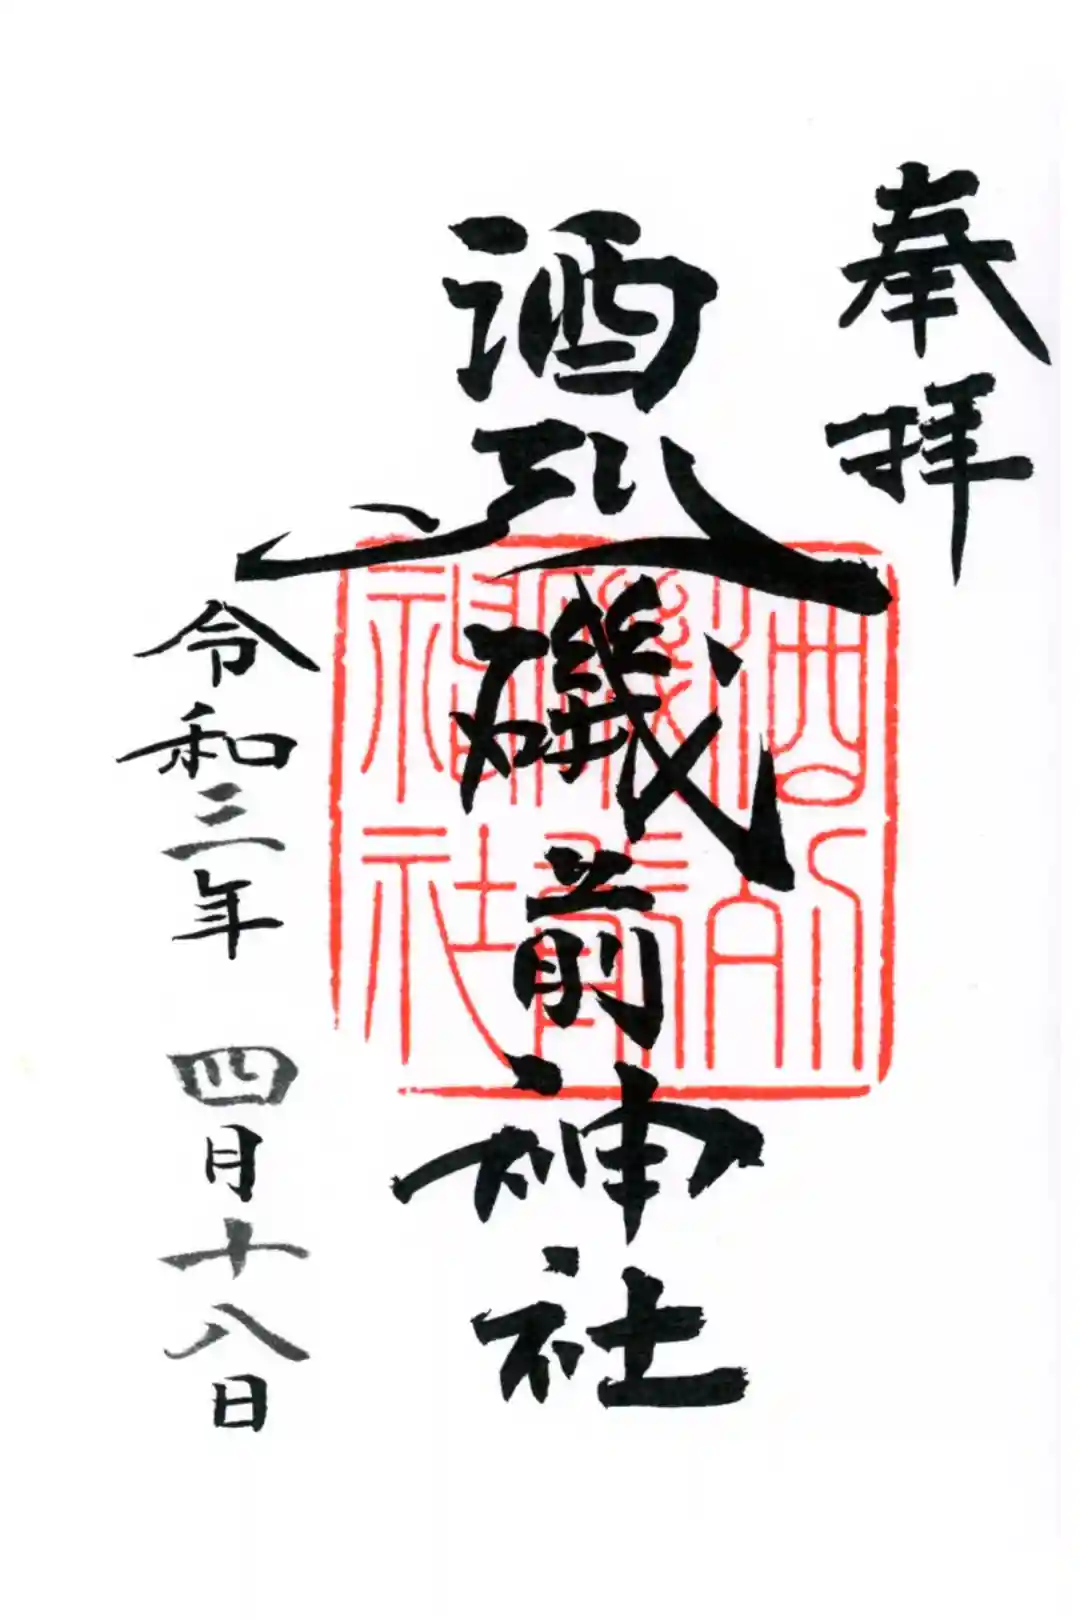 奉拝
酒列磯前神社
酒列
磯前
神社
令和三年 四月十八日